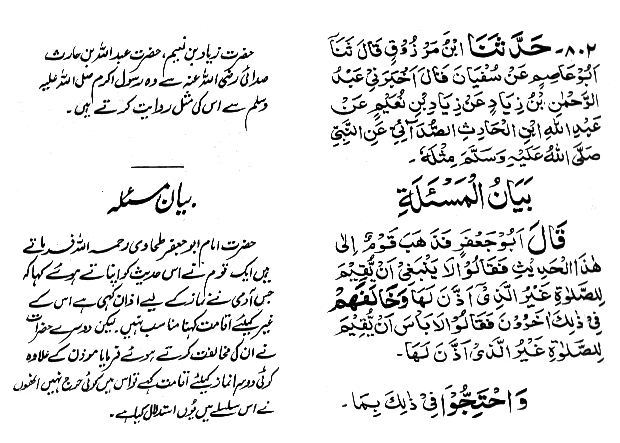 ۸۰۲- حَدَّثَنَا ابْنُ مَرْزُوقٍ قَالَ ثَنَا
اَبُوْعَاصِمٍ عَنْ سُفْيَانَ قَالَ اَخْبَرَنِیْ عَبْدُ
الرَّحْمٰنِ بْنُ زِيَادٍ عَنْ زِيَادِ بْنِ نُعَيْمٍ عَنْ
عَبْدِ اللهِ ابْنِ الْحَارِثِ الصُّدَآئِیِّ عَنِ النَّبِیِّ
صَلَّی اللهُ عَلَيْهِ وَسَلَّمَ مِثْلَهٗ۔
بَيَانُ الْمَسْئَلَةِ
قَالَ اَبُوْجَعْفَرٍ فَذَهَبَ قَوْمٌ اِلٰی
هٰذَا الْحَدِيْثِ فَقَالُوْا لَا يَنْبَغِیْ اَنْ يُّقِيْمَ
لِلصَّلٰوةِ غَيْرُ الَّذِیْ اَذَّنَ لَهَا وَخَالَفَهُمْ
فِیْ ذٰلِكَ اٰخَرُوْنَ فَقَالُوْا لَا بَاْسَ اَنْ يُّقِيْمَ
لِلصَّلٰوةِ غَيْرُ الَّذِیْ اَذَّنَ لَهَا۔
وَاحْتَجُّوْا فِیْ ذٰلِكَ بِمَا۔
حضرت زیاد بن نعیم، حضرت عبداللہ بن حارث
صدائی رضی اللہ عنہ سے وہ رسول اکرم صلی اللہ علیہ
وسلم سے اس کی مثل روایت کرتے ہیں۔
بیان مسئلہ
حضرت امام ابوجعفر طحاوی رحمہ اللہ فرماتے
ہیں ایک قوم نے اس حدیث کو اپناتے ہوئے کہا کہ
جس آدمی نے نماز کے لیے اذان کہی ہے اس کے
غیر کیلئے اقامت کہنا مناسب نہیں۔ لیکن دوسرے حضرات
نے ان کی مخالفت کرتے ہوئے فرمایا موذن کے علاوہ
کوئی دوسرا نماز کیلئے اقامت کہے تو اس میں کوئی حرج نہیں انھوں
نے اس سلسلے میں یوں استدلال کیا ہے۔